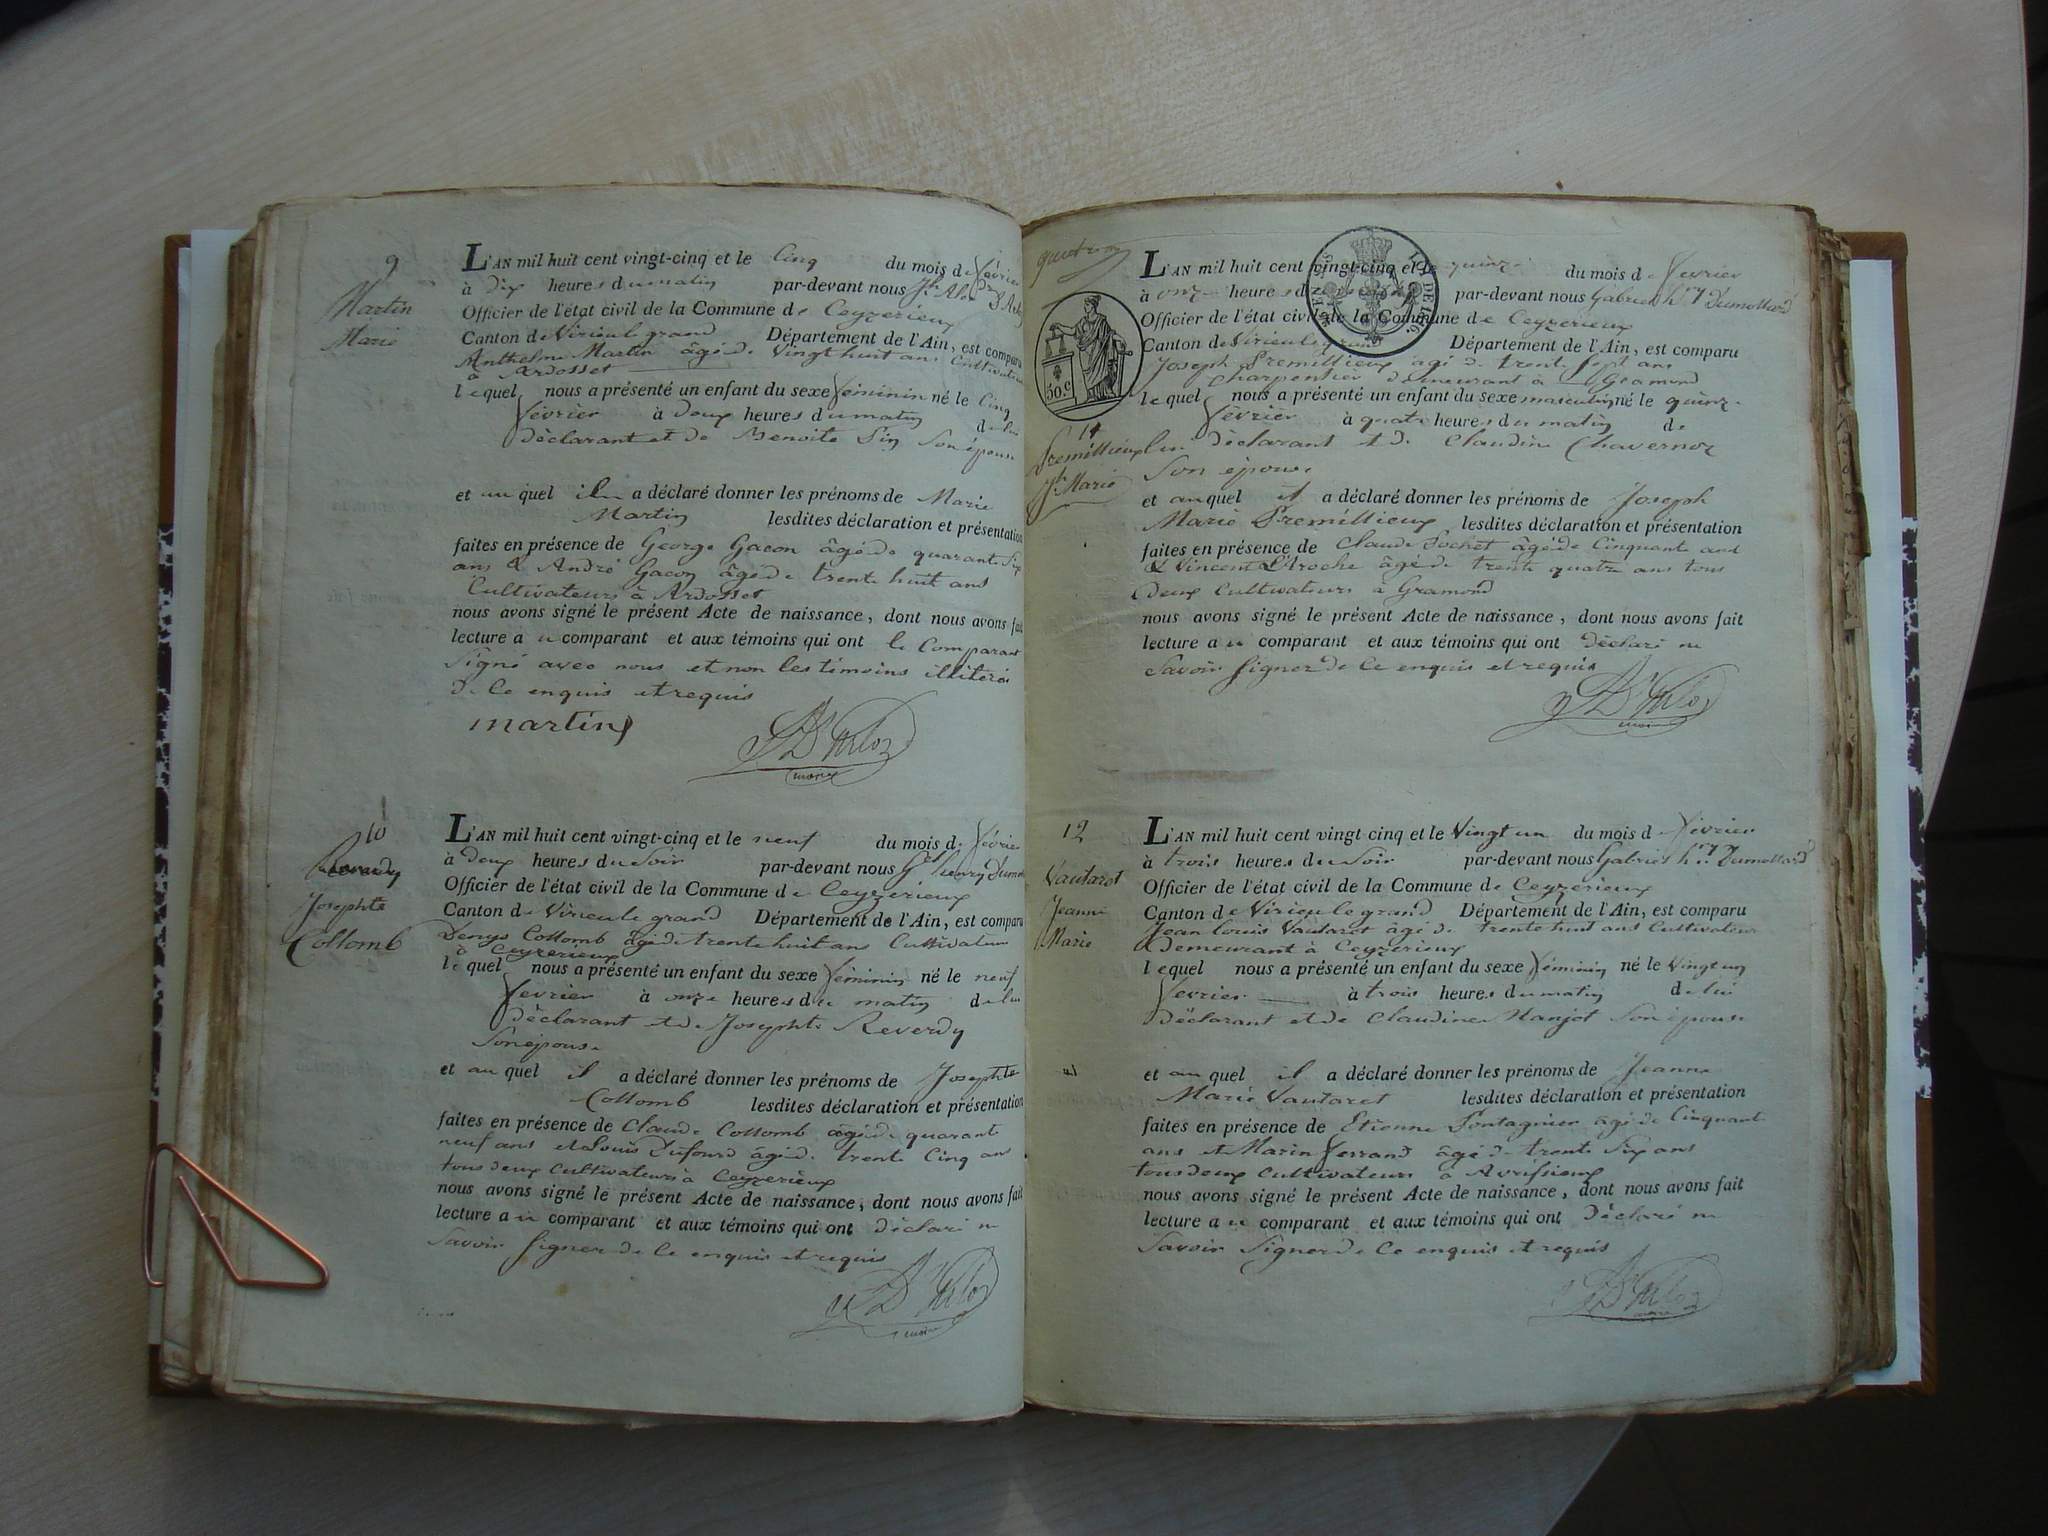 9
Martin
Marie
L'AN mil huit cent vingt-cinq et le Cinq du mois de février
à dix heures du matin par-devant nous
Officier de l'état civil de la Commune de Ceyzerieux
Canton de Virieulegrand Département de l'Ain, est comparu
Anthelme Martin âgé de vingt huit ans Cultivateur
à Ardosset
lequel nous a présenté un enfant du sexe féminin né le Cinq
février à deux heures du matin de lui
déclarant et de Benoite Sin Son épouse
et auquel il a déclaré donner les prénoms de Marie
Martin lesdites déclaration et présentation
faites en présence de George Gacon âgé de quarante Six
ans & André Gacon âgé de trente huit ans
Cultivateurs à Ardosset
nous avons signé le présent Acte de naissance, dont nous avons fait
lecture au comparant et aux témoins qui ont le Comparant
Signé avec nous et non les témoins illiterés
de Ce enquis et requis
martin
maire
10
Reverdy
Josephte
Collomb
L'AN mil huit cent vingt-cinq et le neuf du mois de février
à deux heures du Soir par-devant nous Gel henry Dumol
Officier de l'état civil de la Commune de Ceyzerieux
Canton de Virieu le grand Département de l'Ain, est comparu
Denys Collomb âgé de trente huit ans Cultivateur
à Ceyzerieux
lequel nous a présenté un enfant du sexe féminin né le neuf
fevrier à onze heures du matin de lui
déclarant et de Josephte Reverdy
Son épouse
et auquel il a déclaré donner les prénoms de Josephte
Collomb lesdites déclaration et présentation
faites en présence de Claude Collomb âgé de quarante
neuf ans et Louis Dufourd âgé de trente Cinq ans
tous deux Cultivateurs à Ceyzerieux
nous avons signé le présent Acte de naissance, dont nous avons fait
lecture au comparant et aux témoins qui ont déclaré ne
Savoir Signer de Ce enquis et requis
maire
50.c
11
Premillieux
Jh Marie
L'AN mil huit cent vingt-cinq et le quinze du mois de fevrier
à onze heures du par-devant nous Gabriel hry Dumollard
Officier de l'état civil de la Commune de Ceyzerieux
Canton de Virieulegrand Département de l'Ain, est comparu
Joseph Premillieux âgé de trente Sept ans
Charpentier demeurant à Gramond
lequel nous a présenté un enfant du sexe masculin né le quinze
février à quatre heures du matin de
lui déclarant et de Claudine Chavernoz
Son épouse
et auquel il a déclaré donner les prénoms de Joseph
Marie Premillieux lesdites déclaration et présentation
faites en présence de Claude Pochet âgé de Cinquante ans
& Vincent LaRoche âgé de trente quatre ans tous
Deux Cultivateurs à Gramond
nous avons signé le présent Acte de naissance, dont nous avons fait
lecture au comparant et aux témoins qui ont déclaré ne
Savoir Signer de Ce enquis et requis
maire
12
Vautaret
Jeanne
Marie
L'AN mil huit cent vingt-cinq et le Vingt un du mois de février
à trois heures du Soir par-devant nous Gabriel hry Dumollard
Officier de l'état civil de la Commune de Ceyzerieux
Canton de Virieu le grand Département de l'Ain, est comparu
Jean Louis Vautaret âgé de trente huit ans Cultivateur
demeurant à Ceyzerieux
lequel nous a présenté un enfant du sexe féminin né le Vingt un
fevrier à trois heures du matin de lui
déclarant et de Claudine Manjot Son épouse
et auquel il a déclaré donner les prénoms de Jeanne
Marie Vautaret lesdites déclaration et présentation
faites en présence de Etienne Pontagnier âgé de Cinquante
ans et Marin ferrand âgé de trente Six ans
tous deux Cultivateurs à Avrissieux
nous avons signé le présent Acte de naissance, dont nous avons fait
lecture au comparant et aux témoins qui ont déclaré ne
Savoir Signer de Ce enquis et requis
maire